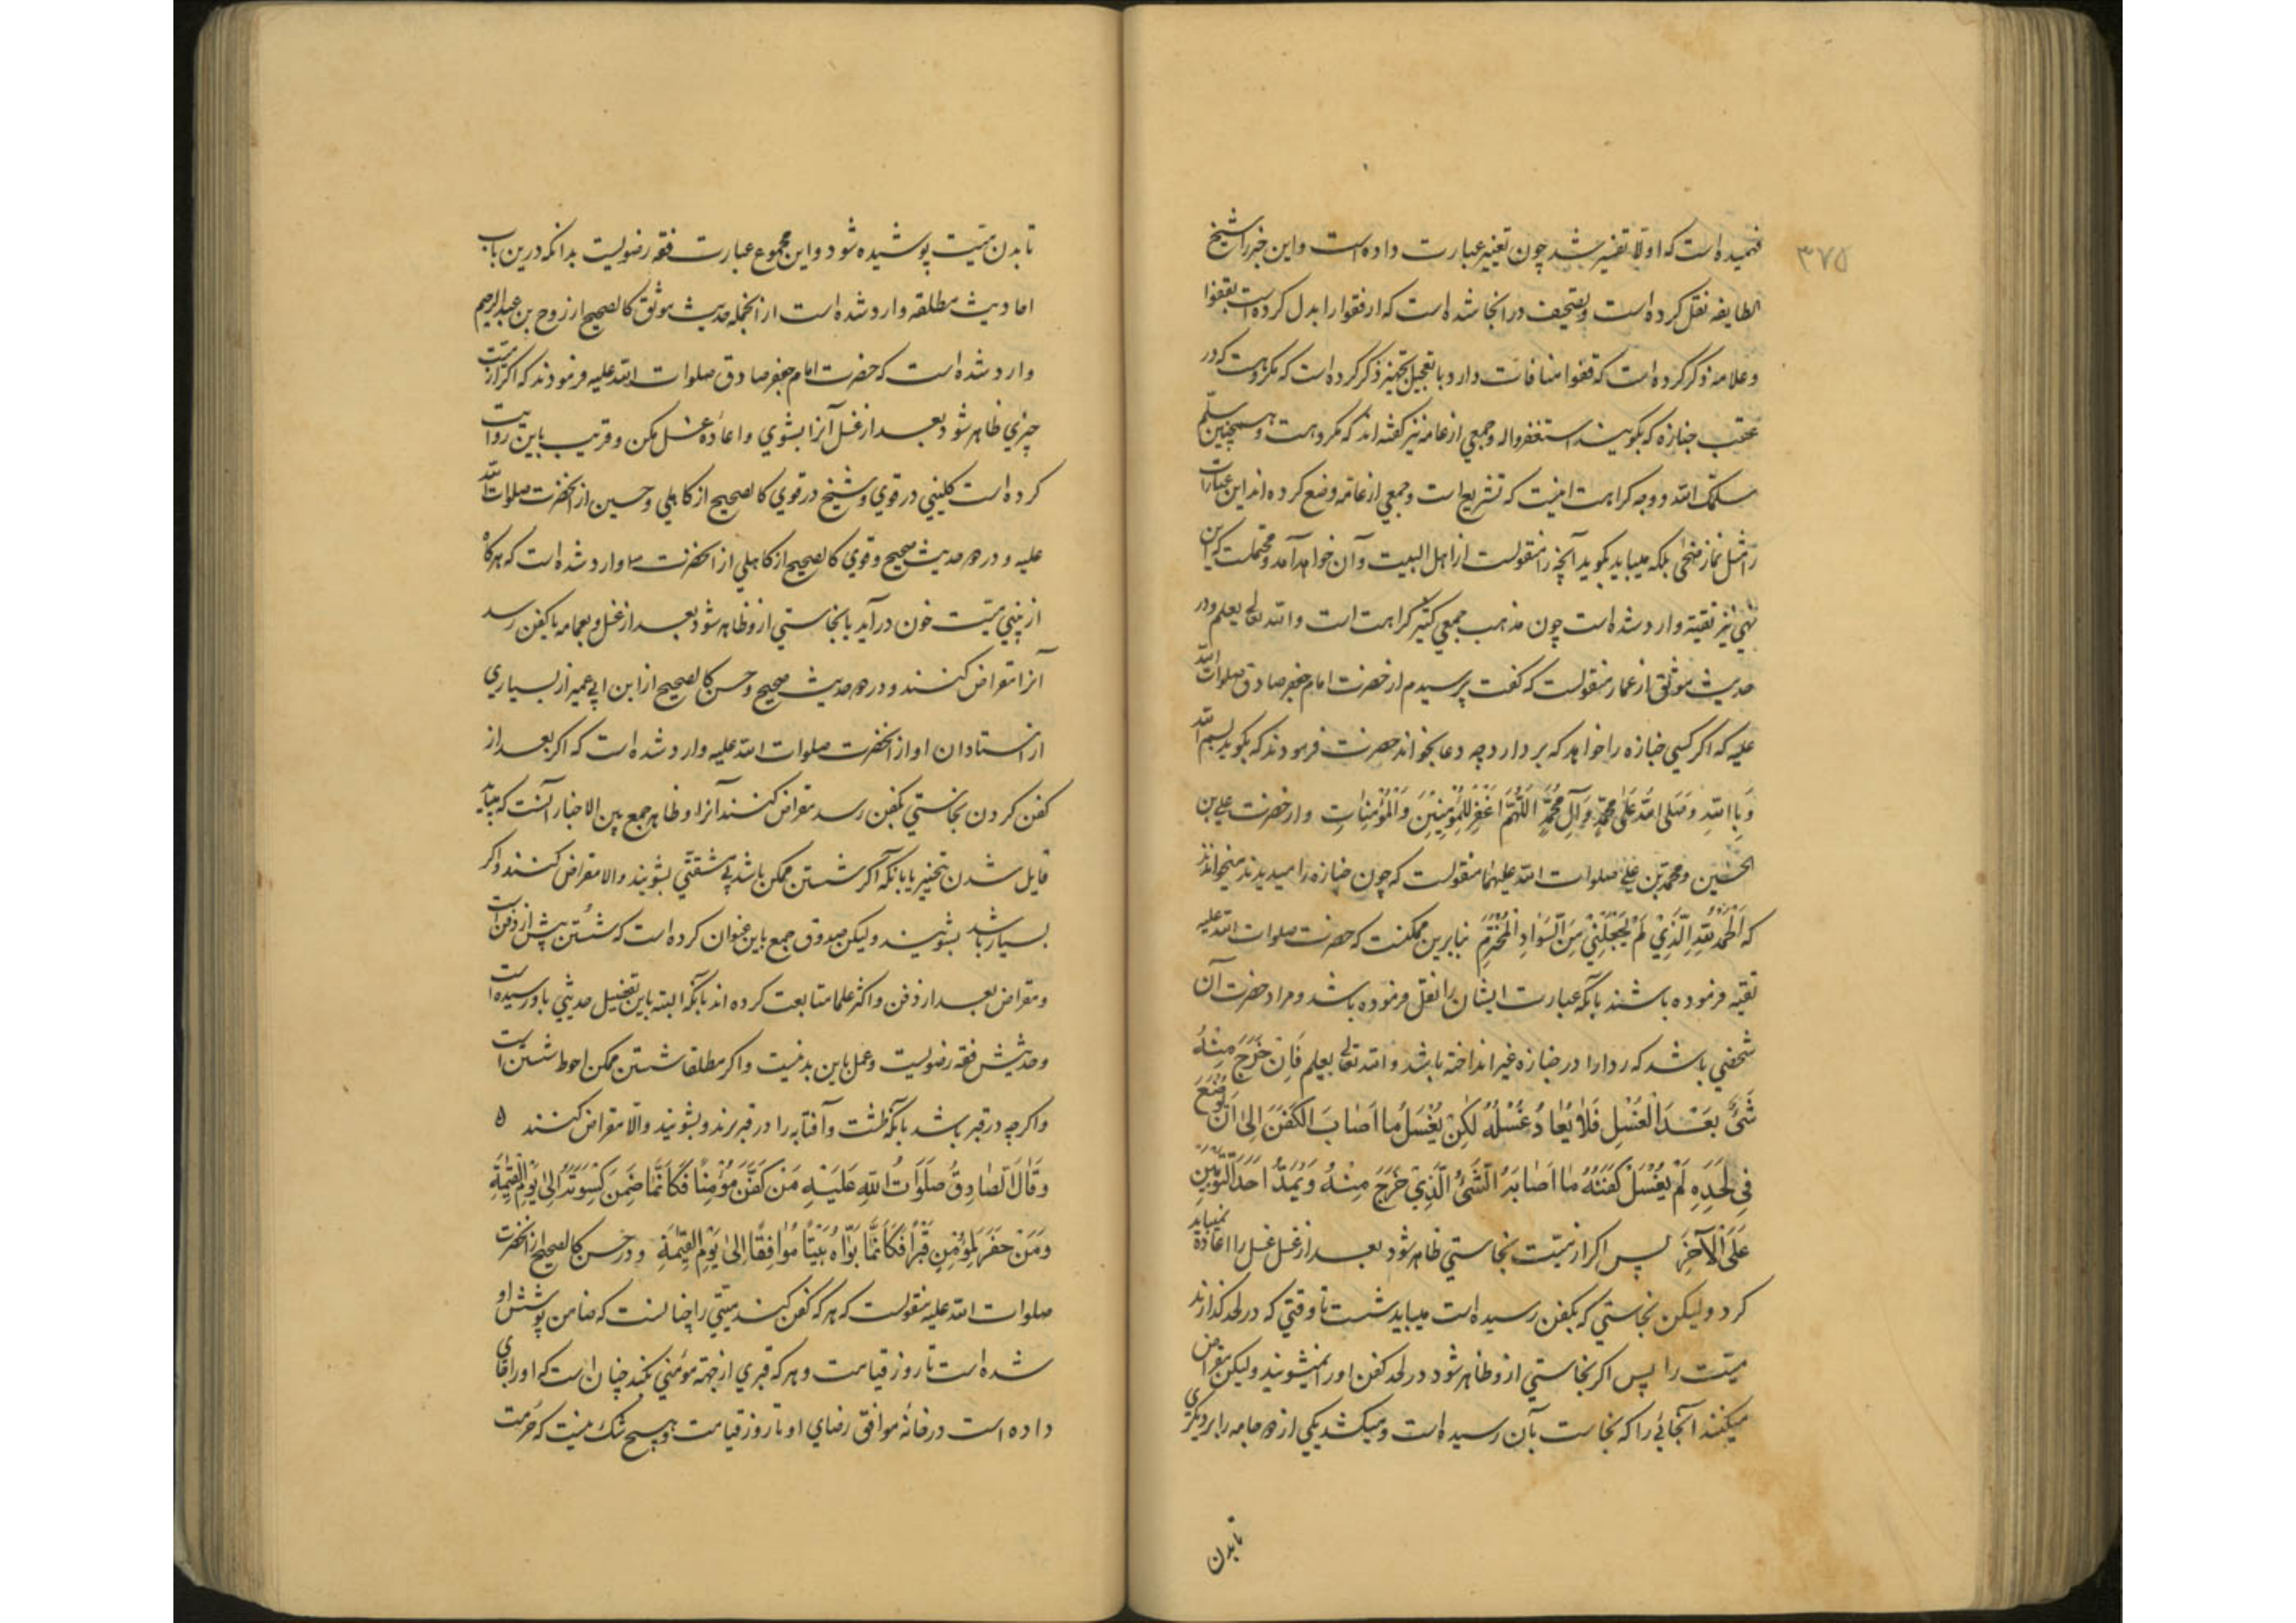 ۳۷۵
فهمیده است که اولا تفسیر شد چون تغییر عبارت داده است و این خبر را شیخ
الطایفه نقل کرده است و تصحیف در انجا شده است که ارفقوا را بدل کرده است بقفوا
و علامه ذکر کرده است که قفوا منافات دارد با تعجیل تجهیز ذکر کرده است که مکروهست که در
عقب جنازه که بکویند استغفروا له و جمعی از عامه نیز کفته اند که مکروهست و همچنین سلّم
سلمک الله و وجه کراهت اینست که تشریع است و جمعی از عامه وضع کرده اند این عبارات
را مثل نماز ضحی بلکه میباید بکوید آنچه را منقولست از اهل البیت و آن خواهد آمد و محتملست که این
نهی نیز تقیة وارد شده است چون مذهب جمعی کثیر کراهت است والله تعالی یعلم و در
حدیث موثق از عمار منقولست که کفت پرسیدم از حضرت امام جعفر صادق صلوات الله
علیه که اکر کسی جنازه را خواهد که بردارد چه دعا بخواند حضرت فرمودند که بکوید بسم الله
وَبِاللهِ وَصَلَّی اللهُ عَلٰی مُحَمَّدٍ وَآلِ مُحَمَّدٍ اَللّٰهُمَّ اغْفِرْ لِلْمُؤْمِنِینَ وَالْمُؤْمِنٰاتِ و از حضرت علی بن
الحسین و محمد بن علی صلوات الله علیهما منقولست که چون جنازه را میدیدند میخواندند
که اَلْحَمْدُ لِلّٰهِ الَّذِیْ لَمْ یَجْعَلْنِیْ مِنَ السَّوٰادِ الْمُخْتَرَمِ بنابرین ممکنست که حضرت صلوات الله علیه
تقیه فرموده باشند یا آنکه عبارت ایشان را نقل فرموده باشد و مراد حضرت آن
شخصی باشد که ردا را در جنازه غیر انداخته باشد والله تعالی یعلم فَاِنْ خَرَجَ مِنْهُ
شَیْءٌ بَعْدَ الْغُسْلِ فَلٰا یُعٰادُ غُسْلُهُ لٰکِنْ یُغْسَلُ مٰا اَصٰابَ الْکَفَنَ اِلٰی اَنْ یُوْضَعَ
فِی لَحْدِهِ لَمْ یُغْسَلْ کَفَنُهُ مٰا اَصٰابَهُ الشَّیْءُ الَّذِیْ خَرَجَ مِنْهُ وَیُمَدُّ اَحَدُ الثَّوْبَیْنِ
عَلَی الْآخَرِ پس اکر از میّت نجاستی ظاهر شود بعد از غسل غسل را اعاده نمیباید
کرد ولیکن نجاستی که بکفن رسیده است میباید شست تا وقتی که در لحد کذارند
میّت را پس اکر نجاستی از و ظاهر شود در لحد کفن او را نمیشویند ولیکن مقراض
میکنند آنجائی را که نجاست بآن رسیده است و میکشد یکی از دو جامه را بر دیکری
تا بدن
تا بدن میّت پوشیده شود و این مجموع عبارت فقه رضویست بدانکه درین باب
احادیث مطلقه وارد شده است از انجمله حدیث موثق کالصحیح از روح بن عبدالرحیم
وارد شده است که حضرت امام جعفر صادق صلوات الله علیه فرمودند که اکر از میّت
چیزی ظاهر شود بعد از غسل آنرا بشوی و اعاده غسل مکن و قریب باین روایت
کرده است کلینی در قوی و شیخ در قوی کالصحیح از کاهلی و حسین از انحضرت صلوات الله
علیه و در دو حدیث صحیح و قوی کالصحیح از کاهلی از انحضرت ص وارد شده است که هرکاه
از بینی میّت خون در آید یا نجاستی از و ظاهر شود بعد از غسل و بعمامه یا کفن رسد
آنرا مقراض کنند و در دو حدیث صحیح و حسن کالصحیح از ابن ابی عمیر از بسیاری
از استادان او از انحضرت صلوات الله علیه وارد شده است که اکر بعد از
کفن کردن نجاستی بکفن رسد مقراض کنند آنرا و ظاهر جمع بین الاخبار آنست که میباید
قایل شدن بتخییر یا بانکه اکر شستن ممکن باشد بی مشقتی بشویند والا مقراض کنند و اکر
بسیار باشد بشویند ولیکن صدوق جمع باین عنوان کرده است که شستن پیش از دفن است
و مقراض بعد از دفن و اکثر علما متابعت کرده اند با آنکه البته باین تفصیل حدیثی باو رسیده است
و حدیثش فقه رضویست و عمل باین بد نیست و اکر مطلقا شستن ممکن احوط شستن است
و اکرچه در قبر باشد بانکه طشت و آفتابه را در قبر برند و بشویند والّا مقراض کنند ه
وَقٰالَ الصّٰادِقُ صَلَوٰاتُ اللهِ عَلَیْهِ مَنْ کَفَّنَ مُؤْمِنًا فَکَاَنَّمٰا ضَمِنَ کِسْوَتَهُ اِلٰی یَوْمِ الْقِیٰمَةِ
وَمَنْ حَفَرَ لِمُؤْمِنٍ قَبْرًا فَکَاَنَّمٰا بَوَّاَهُ بَیْتًا مُوٰافِقًا اِلٰی یَوْمِ الْقِیٰمَةِ و در حسن کالصحیح از انحضرت
صلوات الله علیه منقولست که هر که کفن کند میّتی را چنانست که ضامن پوشش او
شده است تا روز قیامت و هر که قبری از جهة مؤمنی بکند چنان است که او را جای
داده است در خانهٔ موافق رضای او تا روز قیامت و هیچ شک نیست که حرمت